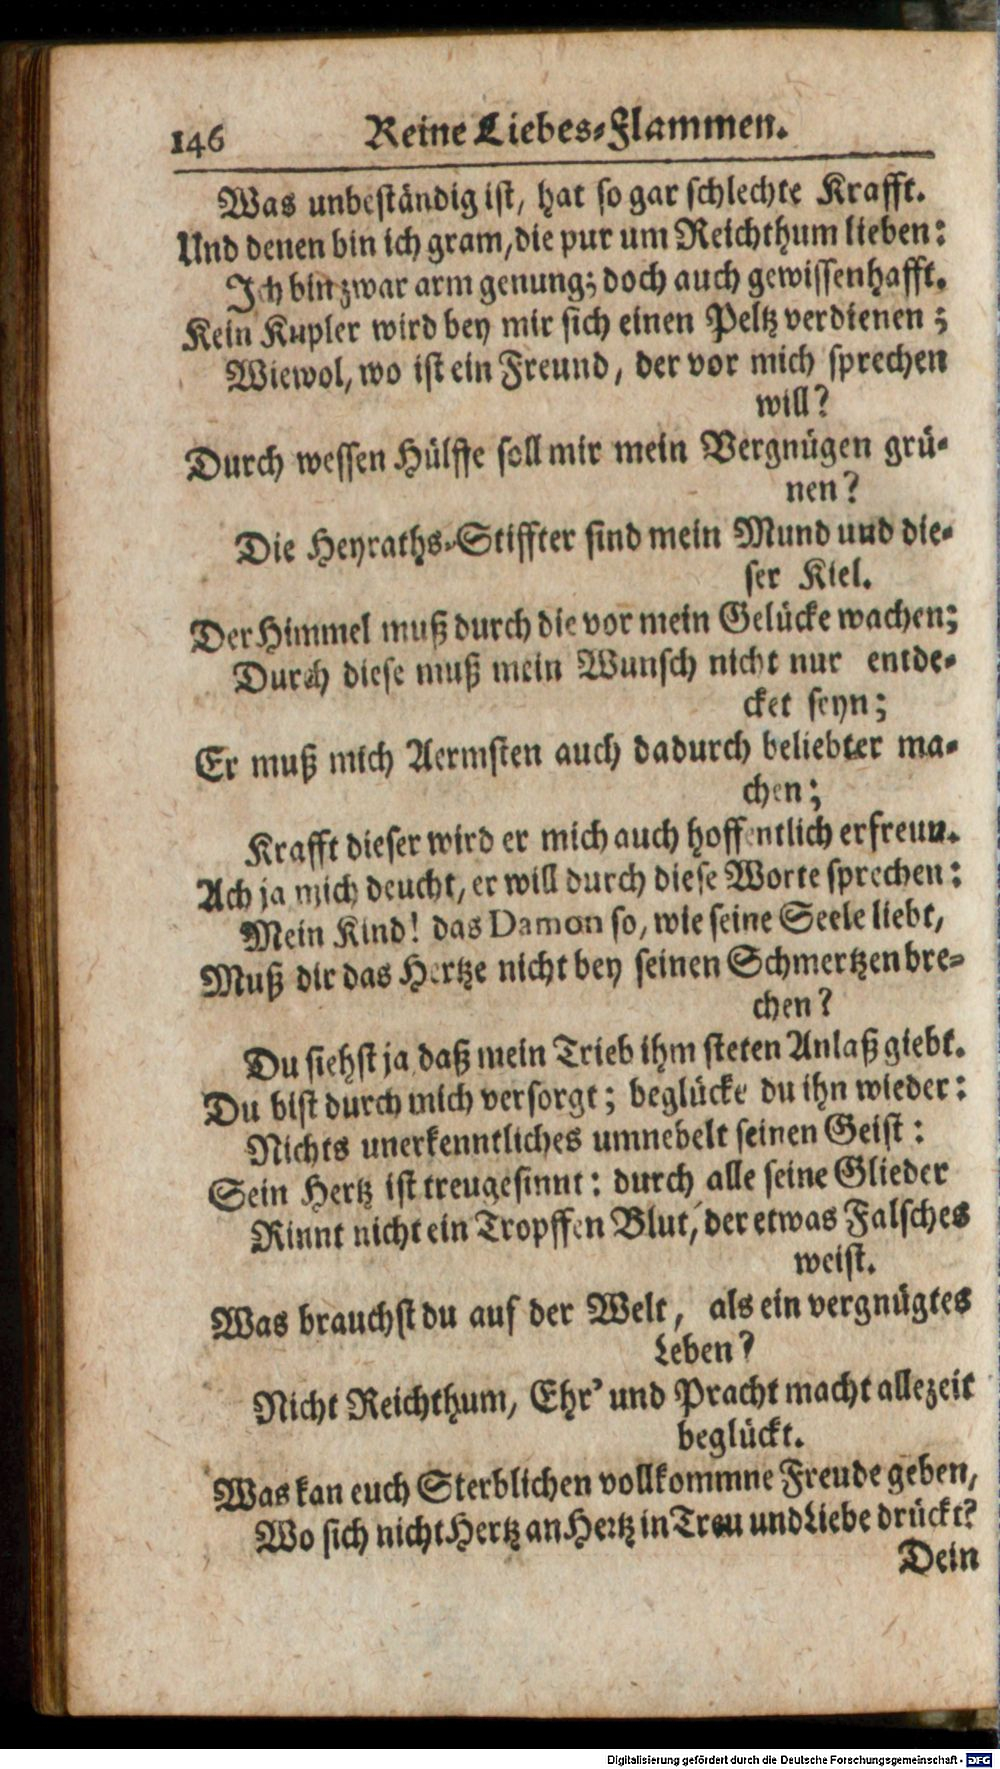 146 Reine Liebes-Flammen.
Was unbeständig ist, hat so gar schlechte Krafft.
Und denen bin ich gram, die pur um Reichthum lieben:
Ich bin zwar arm genung; doch auch gewissenhafft.
Kein Kupler wird bey mir sich einen Peltz verdienen;
Wiewol, wo ist ein Freund, der vor mich sprechen
will?
Durch wessen Hülffe soll mir mein Vergnügen grü-
nen?
Die Heyraths-Stiffter sind mein Mund und die-
ser Kiel.
Der Himmel muß durch die vor mein Gelücke wachen;
Durch diese muß mein Wunsch nicht nur entde-
cket seyn;
Er muß mich Aermsten auch dadurch beliebter ma-
chen;
Krafft dieser wird er mich auch hoffentlich erfreun.
Ach ja mich deucht, er will durch diese Worte sprechen:
Mein Kind! das Damon so, wie seine Seele liebt,
Muß dir das Hertze nicht bey seinen Schmertzen bre-
chen?
Du siehst ja daß mein Trieb ihm steten Anlaß giebt.
Du bist durch mich versorgt; beglücke du ihn wieder:
Nichts unerkenntliches umnebelt seinen Geist:
Sein Hertz ist treugesinnt: durch alle seine Glieder
Rinnt nicht ein Tropffen Blut, der etwas Falsches
weist.
Was brauchst du auf der Welt, als ein vergnügtes
Leben?
Nicht Reichthum, Ehr' und Pracht macht allezeit
beglückt.
Was kan euch Sterblichen vollkommne Freude geben,
Wo sich nicht Hertz an Hertz in Treu und Liebe drückt?
Dein
Digitalisierung gefördert durch die Deutsche Forschungsgemeinschaft - DFG